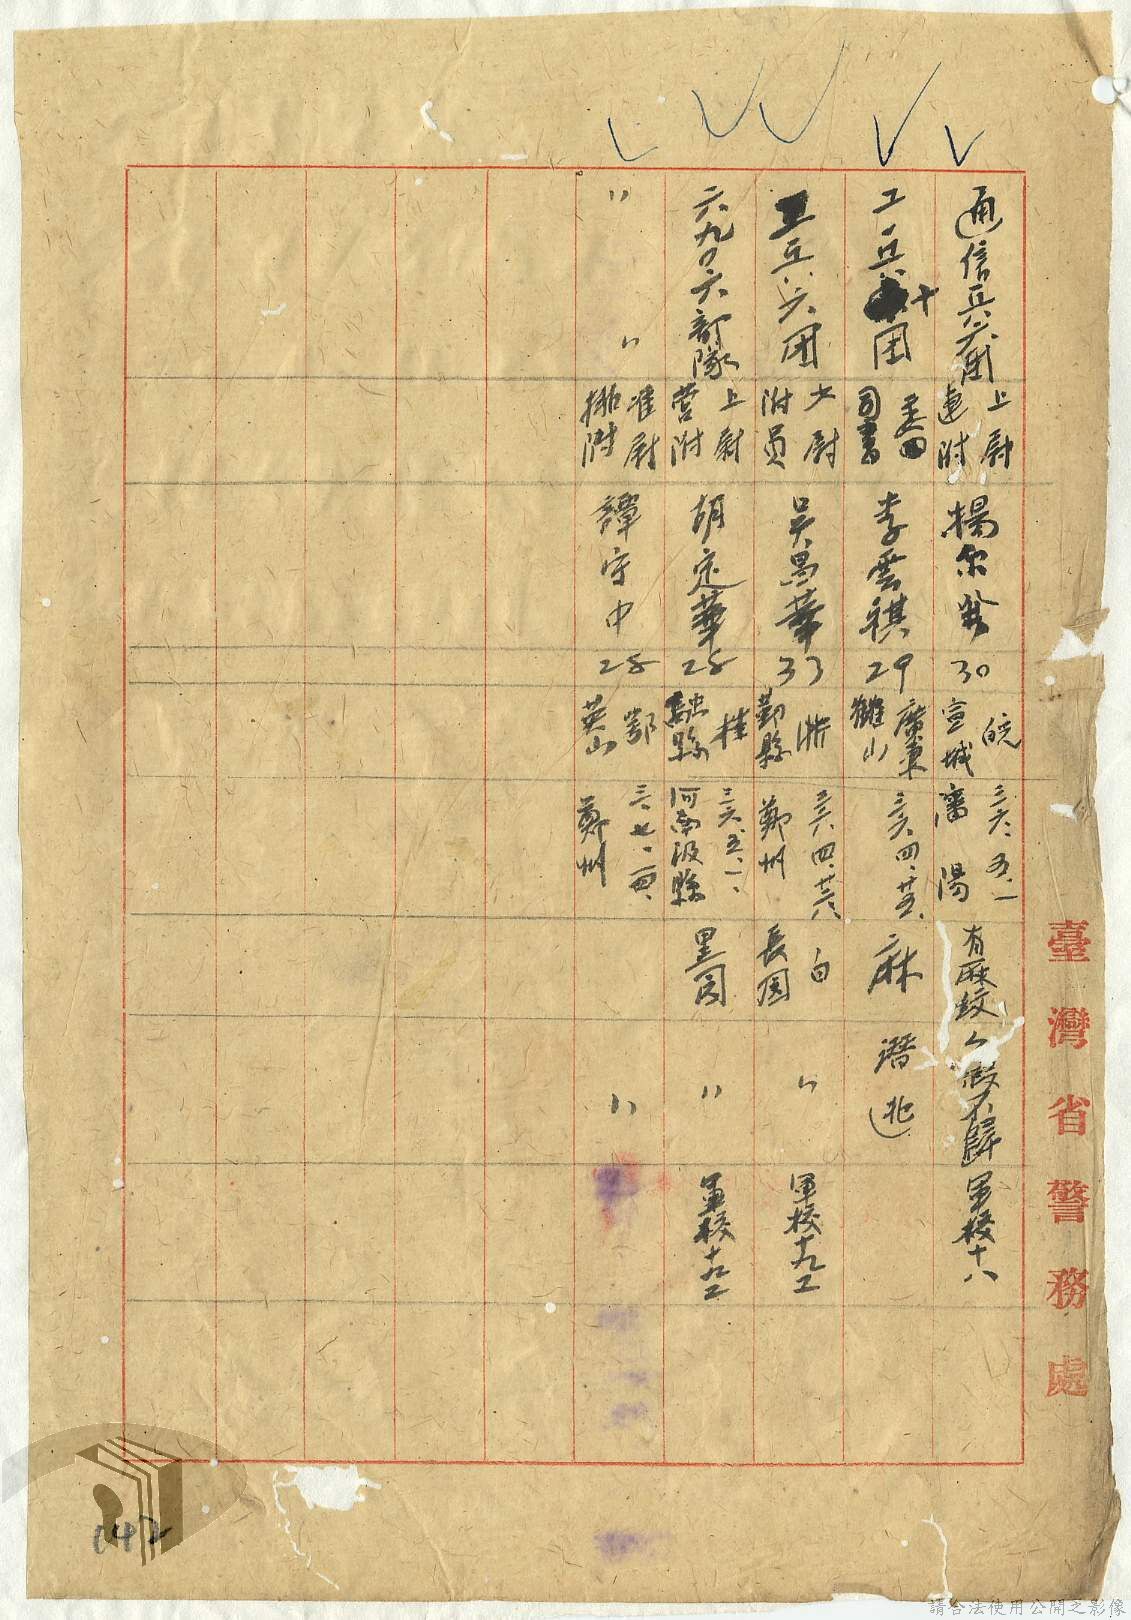 臺灣省警務處
通信兵六團
上尉
連附
楊
30
皖
宣城
三六、五、一
瀋陽
有麻紋
假不歸
軍校十八
工兵十團
司書
李雲祺
29
廣東
鶴山
三六、四、廿五、
麻
潛逃
工兵六團
少尉
附員
吳昌華
33
浙
鄞縣
三六、四、廿六
鄭州
白
長圓
〃
軍校十九工
六九〇六部隊
上尉
營附
胡定華
28
桂
融縣
三六、五、一、
河南汲縣
黑圓
〃
軍校十九工
〃 〃
准尉
排附
譚守中
28
鄂
英山
鄭州
〃
142
請合法使用公開之影像